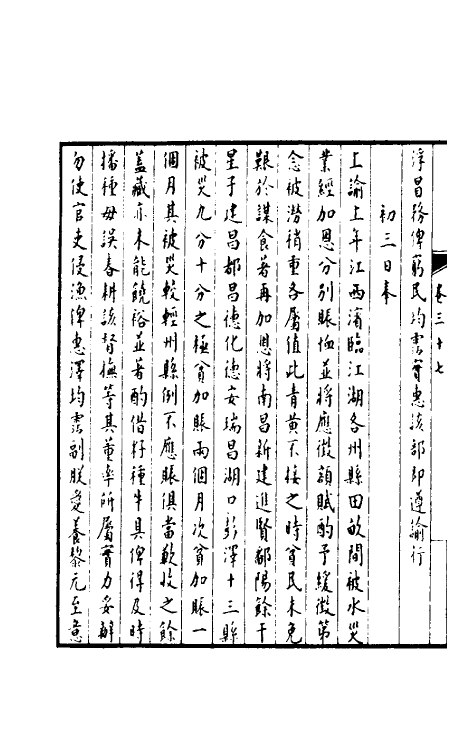 卷三十七
浮冒務俾窮民均霑實惠該部即遵諭行
初三日奉
上諭上年江西濱臨江湖各州縣田畝間被水災
業經加恩分別賑恤並將應徵額賦酌予緩徵第
念被潦稍重各屬值此青黃不接之時貧民未免
艱於謀食著再加恩將南昌新建進賢鄱陽餘干
星子建昌都昌德化德安瑞昌湖口彭澤十三縣
被災九分十分之極貧加賑兩個月次貧加賑一
個月其被災較輕州縣例不應賑俱當歉收之餘
蓋藏亦未能饒裕並著酌借籽種牛具俾得及時
播種毋誤春耕該督撫等其董率所屬實力妥辦
勿使官吏侵漁俾惠澤均霑副朕愛養黎元至意